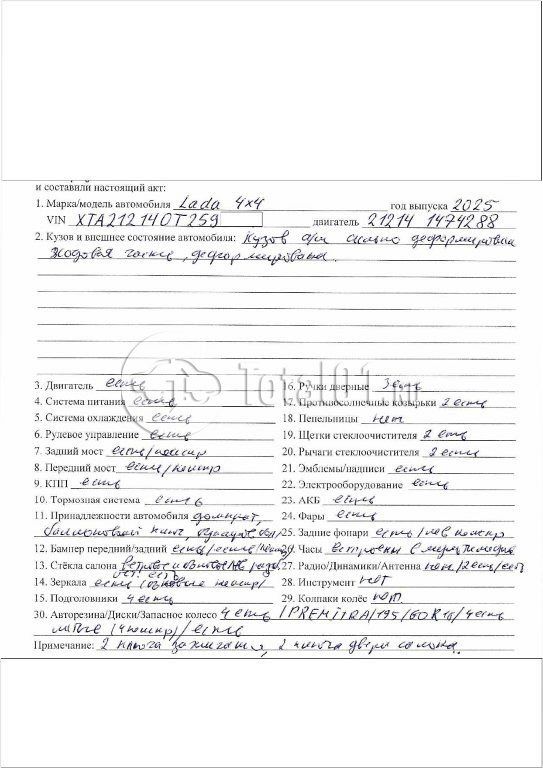 и составили настоящий акт:
1. Марка/модель автомобиля Lada 4x4 год выпуска 2025
VIN XTA212140T259 двигатель 21214 1474288
2. Кузов и внешнее состояние автомобиля: Кузов а/м сильно деформирован
Ходовая часть, деформирована.
3. Двигатель есть 16. Ручки дверные 3 есть
4. Система питания есть 17. Противосолнечные козырьки 2 есть
5. Система охлаждения есть 18. Пепельницы нет
6. Рулевое управление есть 19. Щетки стеклоочистителя 2 есть
7. Задний мост есть/неиспр 20. Рычаги стеклоочистителя 2 есть
8. Передний мост есть/неиспр 21. Эмблемы/надписи есть
9. КПП есть 22. Электрооборудование есть
10. Тормозная система есть 23. АКБ есть
11. Принадлежности автомобиля домкрат, 24. Фары есть
баллонный ключ, 25. Задние фонари есть/лев неиспр
12. Бампер передний/задний есть/есть 26. Часы встроены в
13. Стёкла салона 27. Радио/Динамики/Антенна нет/2 есть/есть
14. Зеркала есть 28. Инструмент нет
15. Подголовники 4 есть 29. Колпаки колёс нет
30. Авторезина/Диски/Запасное колесо 4 есть /195/60R16/4 есть
литые (4 неиспр)/есть
Примечание: 2 ключа зажигания, 2 ключа двери салона.
Total01.ru